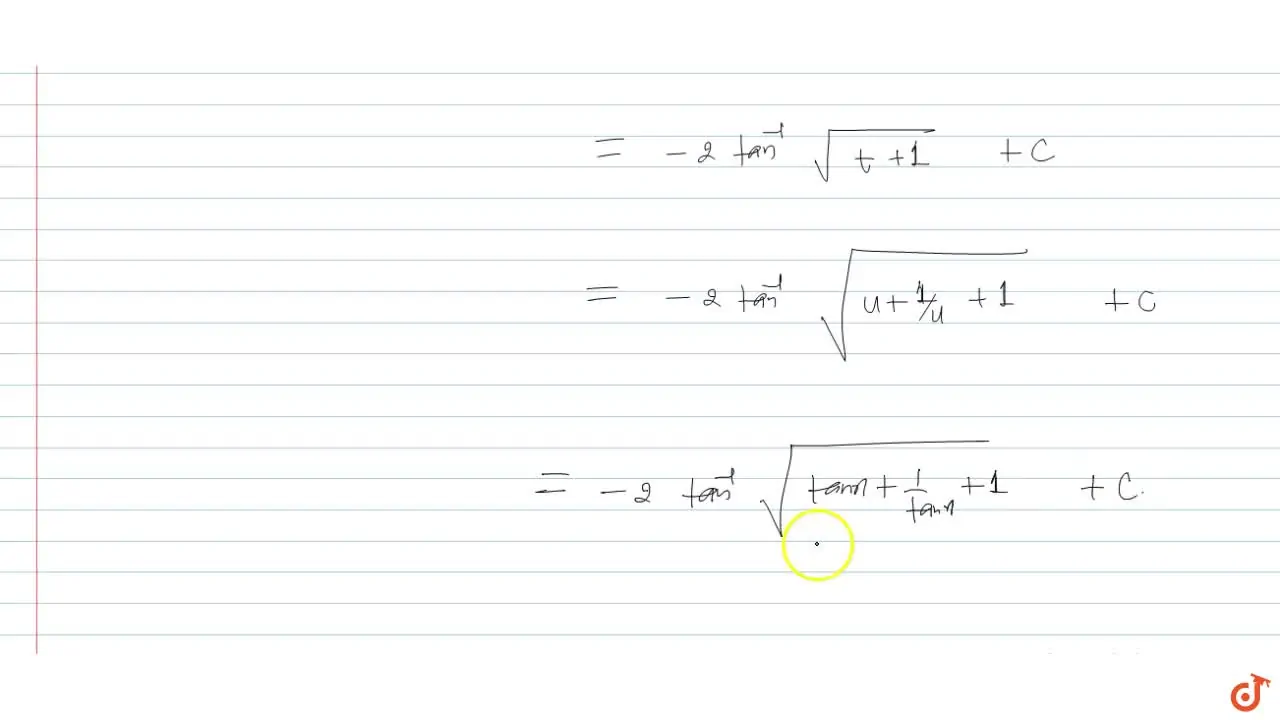 = -2 tan⁻¹ √(t+1) + C
= -2 tan⁻¹ √(u+1/u +1) + C
= -2 tan⁻¹ √(tanx + 1/tanx + 1) + C.